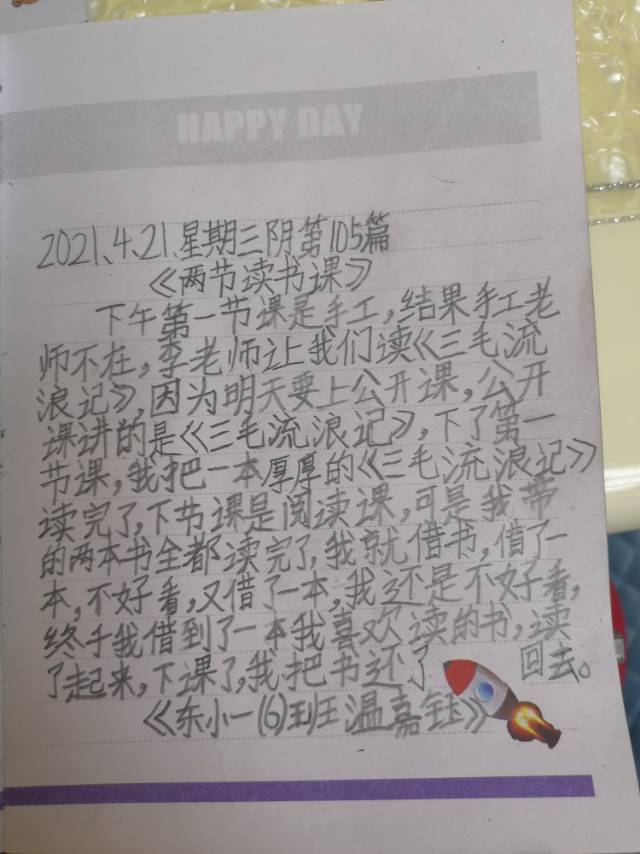 HAPPY DAY
2021、4、21、星期三阴第105篇
《两节读书课》
下午第一节课是手工，结果手工老
师不在，李老师让我们读《三毛流
浪记》，因为明天要上公开课，公开
课讲的是《三毛流浪记》，下了第一
节课，我把一本厚厚的《三毛流浪记》
读完了，下节课是阅读课，可是我带
的两本书全都读完了，我就借书，借了一
本，不好看，又借了一本，我还是不好看，
终于我借到了一本我喜欢读的书，读
了起来，下课了，我把书还了回去。
《东小一(6)班温嘉钰》